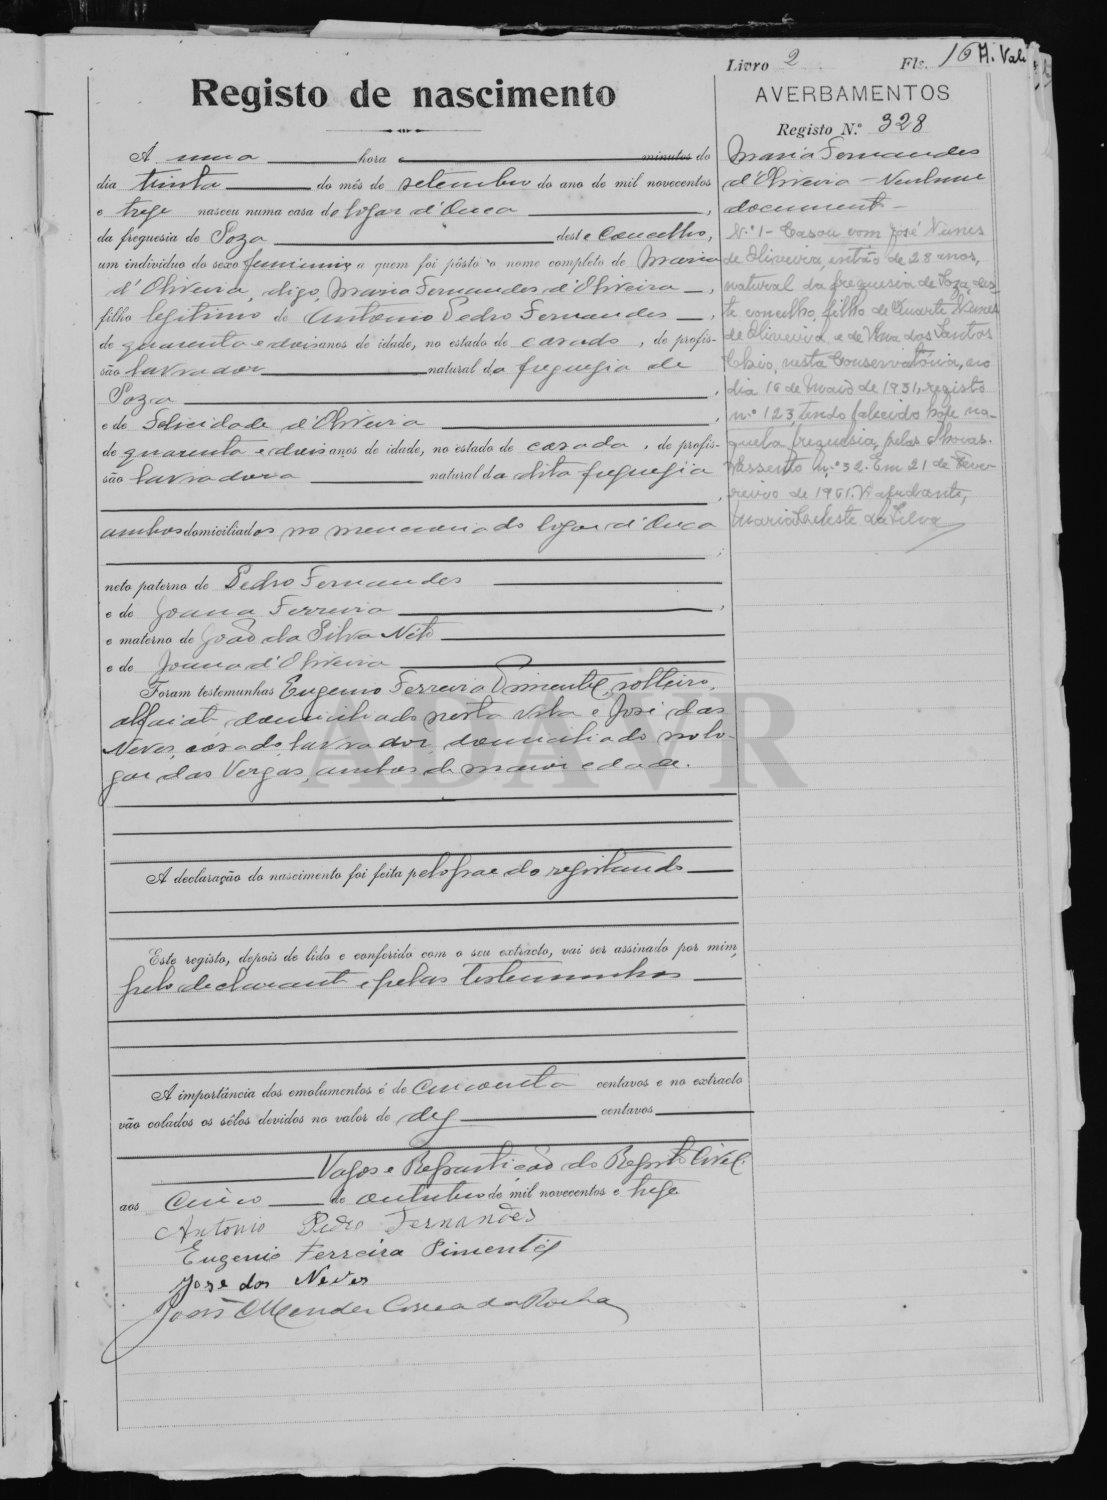 Livro 2 Fls. 16 A. Vale
Registo de nascimento
AVERBAMENTOS
Registo N.º 328
A uma hora e minutos do
dia trinta do mês de setembro do ano de mil novecentos
e treze nasceu numa casa do logar d'Ouca,
da freguesia de Soza deste concelho,
um individuo do sexo feminino a quem foi pôsto o nome completo de Maria
d'Oliveira, digo, Maria Fernandes d'Oliveira,
filho legitimo de Antonio Pedro Fernandes,
de quarenta e dois anos de idade, no estado de casado, de profis-
são lavrador natural da freguezia de
Soza,
e de Felicidade d'Oliveira,
de quarenta e dois anos de idade, no estado de casada, de profis-
são lavradora natural da dita freguezia
,
ambos domiciliados no mencionado logar d'Ouca
;
neto paterno de Pedro Fernandes
e de Joana Ferreira,
e materno de João da Silva Neto
e de Joana d'Oliveira
Foram testemunhas Eugenio Ferreira Pimentel, solteiro,
alfaiate domiciliado nesta vila e José das
Neves, casado, lavrador, domiciliado no lo-
gar das Vergas, ambos de maior edade.
A declaração do nascimento foi feita pelo pae do registando
Este registo, depois de lido e conferido com o seu extracto, vai ser assinado por mim,
pelo declarante e pelas testemunhas
A importância dos emolumentos é de cincoenta centavos e no extracto
vão colados os sêlos devidos no valor de dez centavos
Vagos e Repartição do Registo Civil.
aos cinco de outubro de mil novecentos e treze
Antonio Pedro Fernandes
Eugenio Ferreira Pimentel
Jose das Neves
João Mendes Correa da Rocha
Maria Fernandes
d'Oliveira - Nenhum
documento -
N.º 1 - Casou com José Nunes
de Oliveira, então de 28 anos,
natural da freguesia de Soza, des-
te concelho, filho de Duarte Nunes
de Oliveira e de Ana dos Santos
nesta Conservatória, no
dia 16 de Maio de 1931, registo
n.º 123, tendo falecido hoje na-
quela freguesia, pelas horas.
Assento n.º 32. Em 21 de Feve-
reiro de 1961. A ajudante,
Maria Celeste da Silva
ADAVR